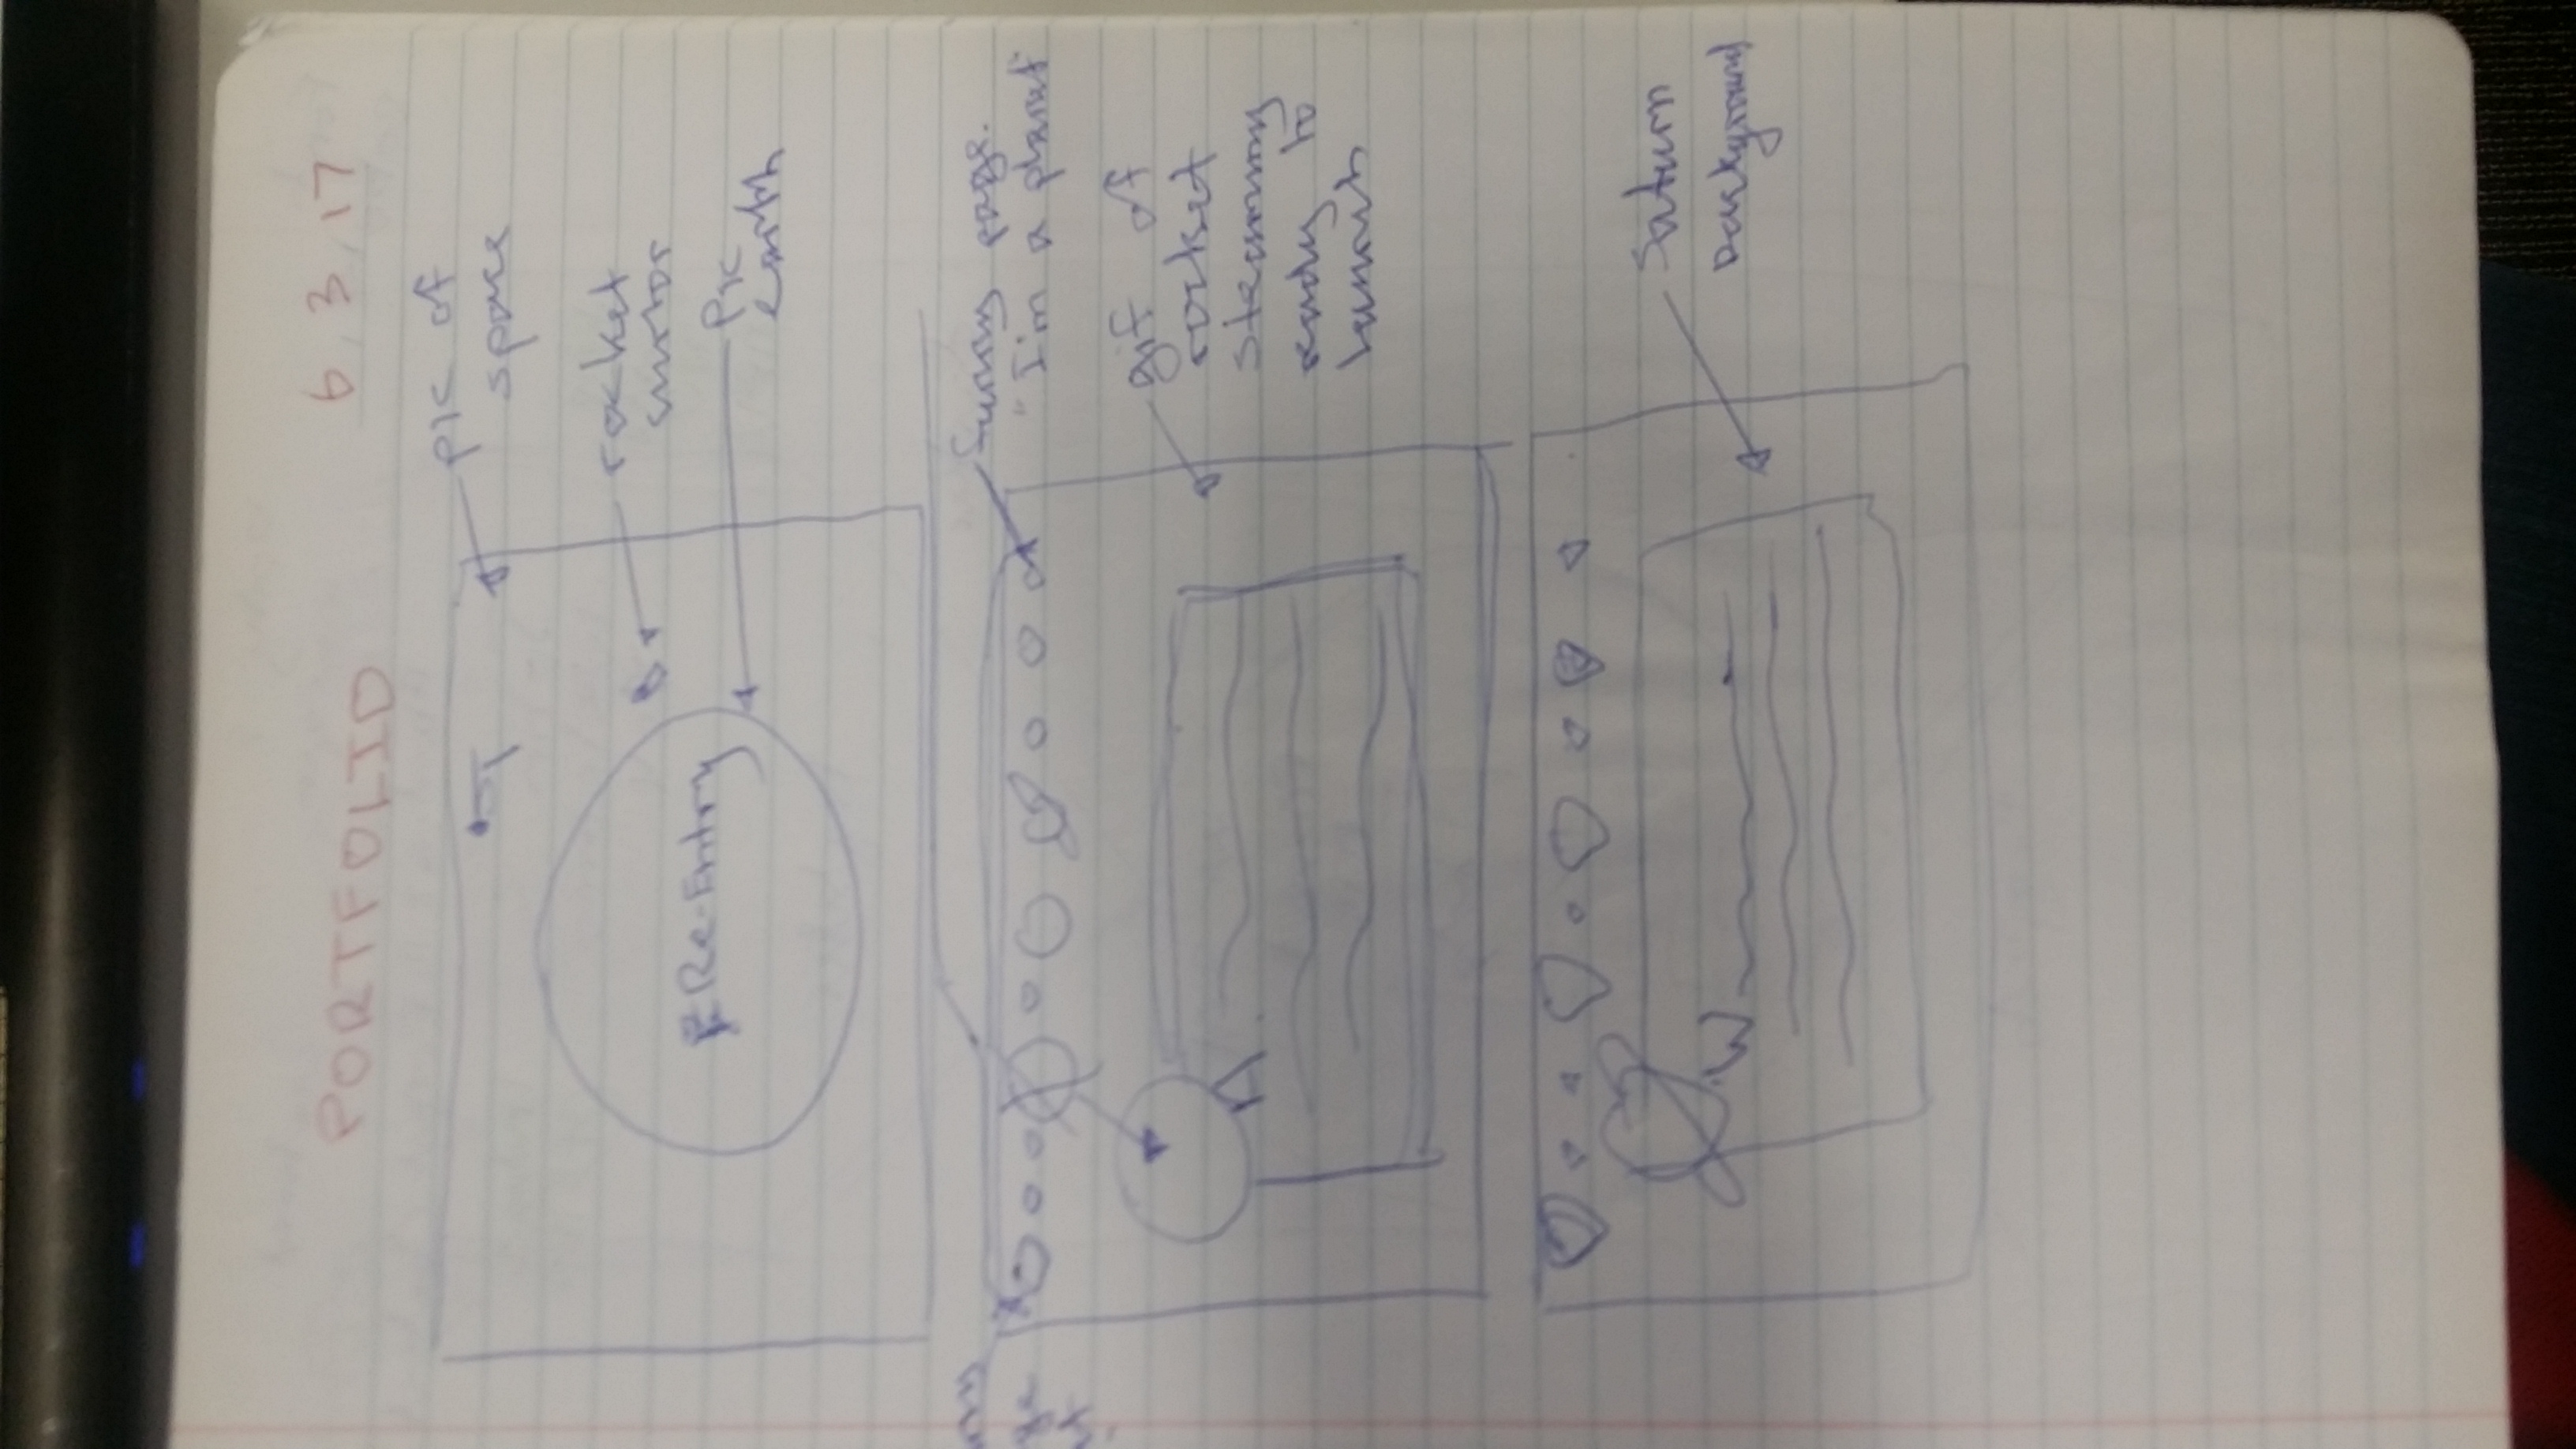 PORTFOLIO 6.3.17
Pic of
space
Re-Entry
rocket
cursor
Pic
earth
Sunny page.
"I'm a planet"
gif of
rocket
steaming
ready to
launch
Saturn
background